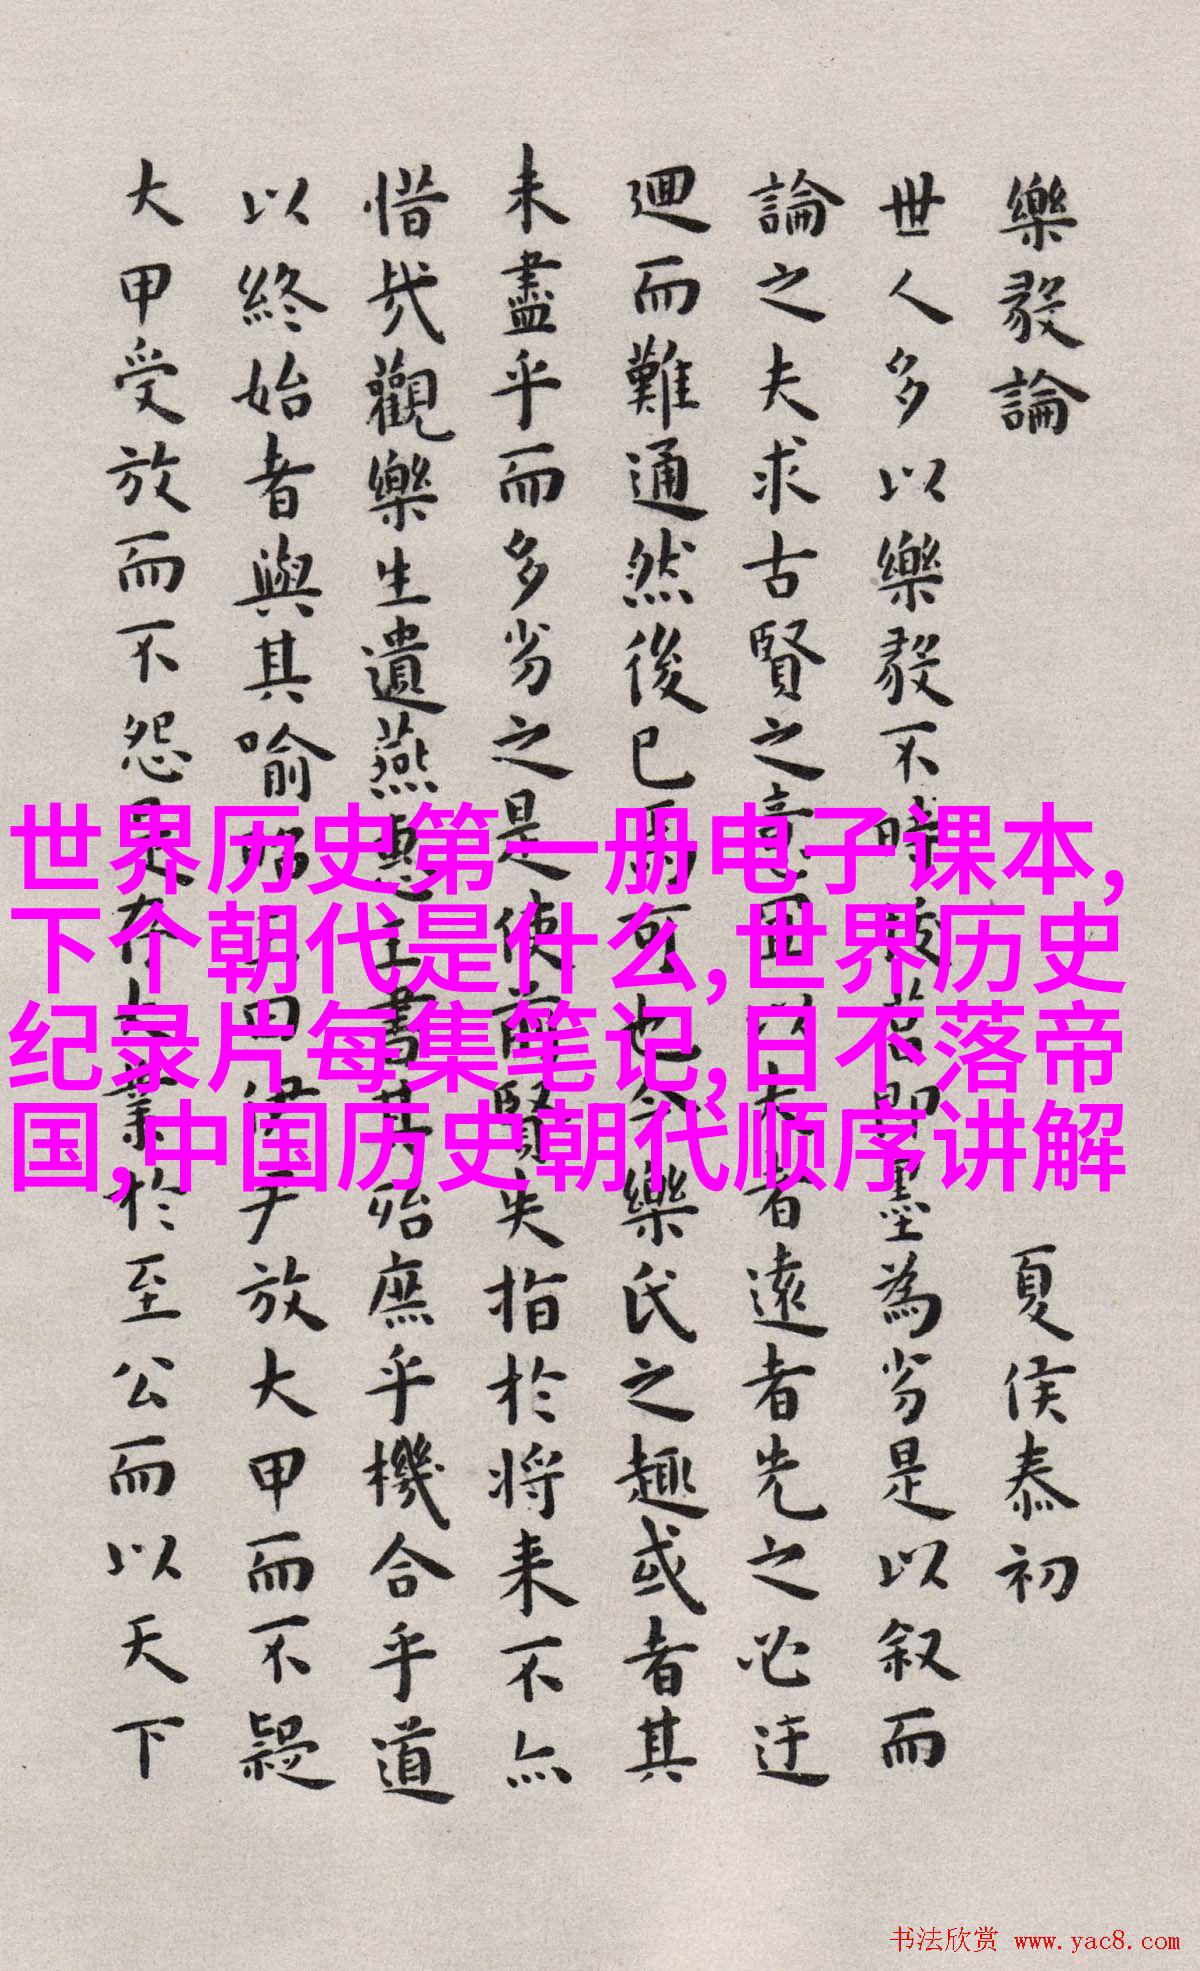 樂毅論 夏侯泰初
世人多以樂毅不時拔莒即墨為劣是以叙而
論之夫求古賢之意宜以大者遠者先之必迂
迴而難通然後已焉可也今樂氏之趣或者其
未盡乎而多劣之是使前賢失指於将来不亦
惜哉觀樂生遺燕惠王書其殆庶乎機合乎道
以終始者與其喻昭王曰伊尹放大甲而不疑
大甲受放而不怨是存大業於至公而以天下
世界历史第一册电子课本,
下个朝代是什么,世界历史
纪录片每集笔记,日不落帝
国,中国历史朝代顺序讲解
书法欣赏 www.yac8.com